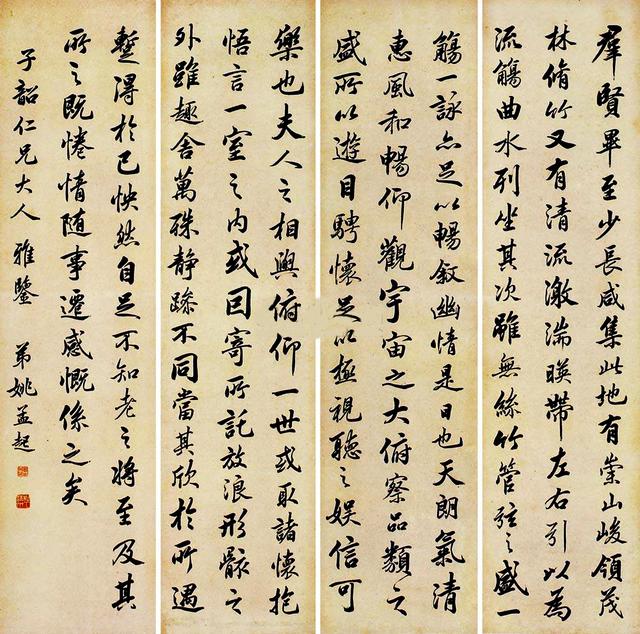 羣賢畢至少長咸集此地有崇山峻領茂
林脩竹又有清流激湍暎帶左右引以為
流觴曲水列坐其次雖無絲竹管弦之盛一
觴一詠亦足以暢敘幽情是日也天朗氣清
惠風和暢仰觀宇宙之大俯察品類之
盛所以遊目騁懷足以極視聽之娛信可
樂也夫人之相與俯仰一世或取諸懷抱
悟言一室之內或因寄所託放浪形骸之
外雖趣舍萬殊靜躁不同當其欣於所遇
暫得於己怏然自足不知老之將至及其
所之既惓情隨事遷感慨係之矣
子韶仁兄大人 雅鑒 弟姚孟起